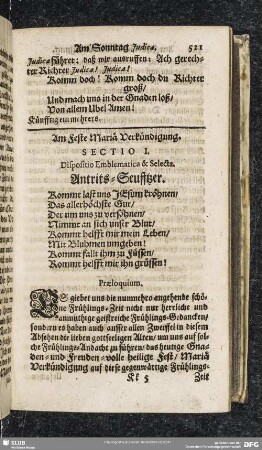 Am Sonntag Judica. 521
Judica führer: daß wir ausruffen: Ach gerech-
ter Richter Judica! Judica!
Komm doch! Komm doch du Richter
groß/
Und mach uns in der Gnaden loß/
Von allem Ubel Amen!
Künfftig ein mehrers.
Am Feste Mariä Verkündigung.
SECTIO I.
Dispositio Emblematica & Selecta.
Antrits-Seufftzer.
Kommt last uns JEsum kröhnen/
Das allerhöchste Gut/
Der um uns zu versöhnen/
Nimmt an sich unser Blut/
Kommt helfft mir mein Leben/
Mit Bluhmen umgeben!
Kommt fallt ihm zu Füssen/
Kommt helfft mir ihn grüssen!
Præloquium.
ES giebet uns die nunmehro angehende schö-
ne Frühlings-Zeit nicht nur herrliche und
anmuthige geistreiche Frühlings-Gedancken/
sondern es haben auch ausser allen Zweiffel in diesem
Absehen die lieben gottseeligen Alten/ um uns auf sol-
che Frühlings-Andacht zu führen/ das heutige Gna-
den- und Freuden-volle heilige Fest/ Mariä
Verkündigung auf diese gegenwärtige Frühlings-
Kk 5 Zeit
SLUB
DFG